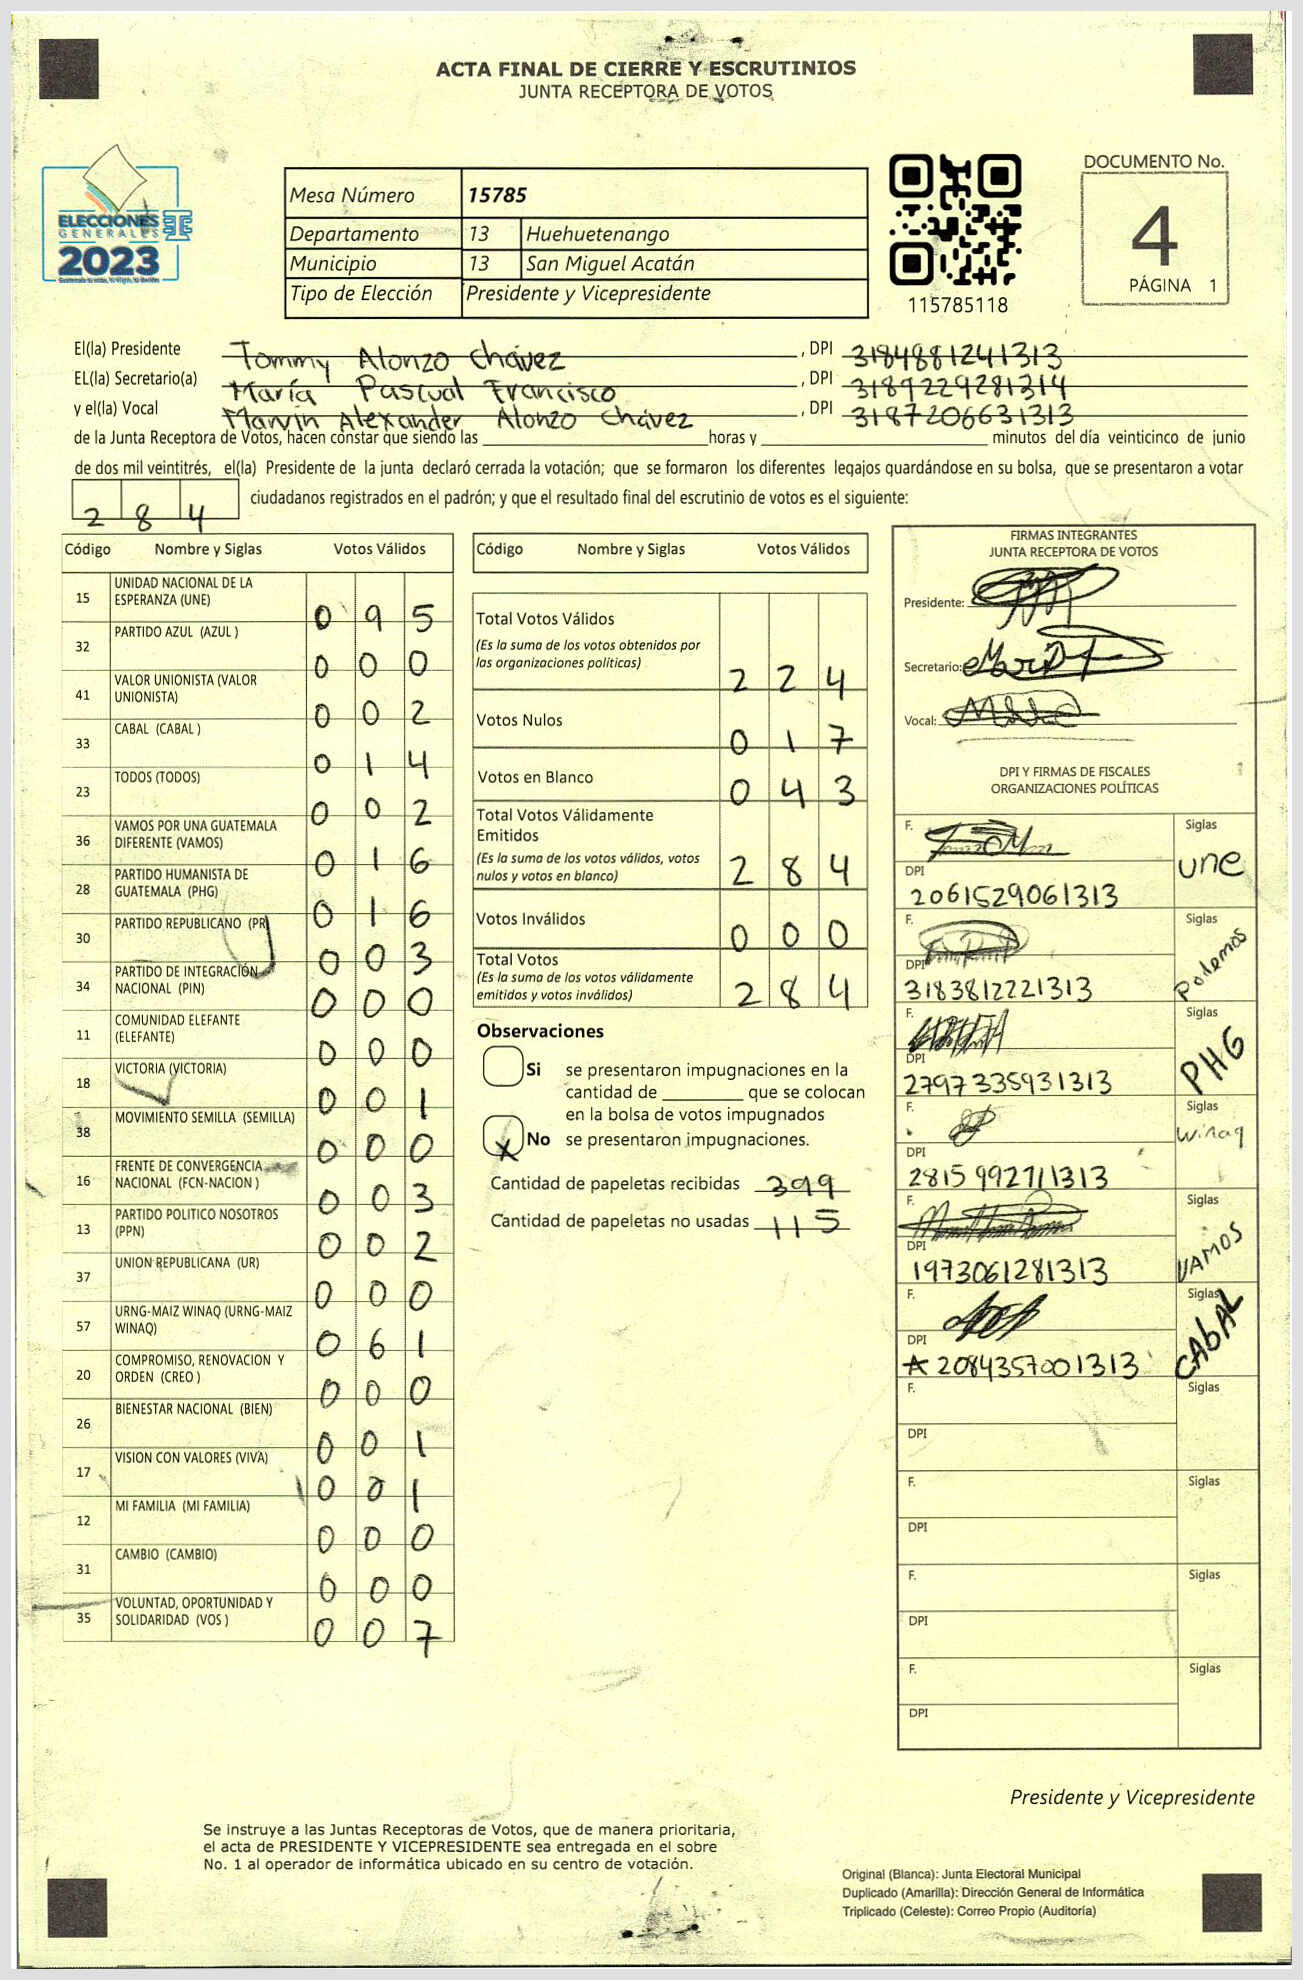 ACTA FINAL DE CIERRE Y ESCRUTINIOS
JUNTA RECEPTORA DE VOTOS
ELECCIONES
GENERALES
2023
Mesa Número 15785
Departamento 13 Huehuetenango
Municipio 13 San Miguel Acatán
Tipo de Elección Presidente y Vicepresidente
115785118
DOCUMENTO No.
4
PÁGINA 1
El(la) Presidente Tommy Alonzo Chávez , DPI 3184881241313
EL(la) Secretario(a) María Pascual Francisco , DPI 3189229281314
y el(la) Vocal Marvin Alexander Alonzo Chávez , DPI 3187206631313
de la Junta Receptora de Votos, hacen constar que siendo las horas y minutos del día veinticinco de junio
de dos mil veintitrés, el(la) Presidente de la junta declaró cerrada la votación; que se formaron los diferentes legajos guardándose en su bolsa, que se presentaron a votar
284 ciudadanos registrados en el padrón; y que el resultado final del escrutinio de votos es el siguiente:
Código Nombre y Siglas Votos Válidos
15 UNIDAD NACIONAL DE LA ESPERANZA (UNE) 095
32 PARTIDO AZUL (AZUL ) 000
41 VALOR UNIONISTA (VALOR UNIONISTA) 002
33 CABAL (CABAL ) 014
23 TODOS (TODOS) 002
36 VAMOS POR UNA GUATEMALA DIFERENTE (VAMOS) 016
28 PARTIDO HUMANISTA DE GUATEMALA (PHG) 016
30 PARTIDO REPUBLICANO (PR) 003
34 PARTIDO DE INTEGRACIÓN NACIONAL (PIN) 000
11 COMUNIDAD ELEFANTE (ELEFANTE) 000
18 VICTORIA (VICTORIA) 001
38 MOVIMIENTO SEMILLA (SEMILLA) 000
16 FRENTE DE CONVERGENCIA NACIONAL (FCN-NACION ) 003
13 PARTIDO POLITICO NOSOTROS (PPN) 002
37 UNION REPUBLICANA (UR) 000
57 URNG-MAIZ WINAQ (URNG-MAIZ WINAQ) 061
20 COMPROMISO, RENOVACION Y ORDEN (CREO ) 000
26 BIENESTAR NACIONAL (BIEN) 001
17 VISION CON VALORES (VIVA) 001
12 MI FAMILIA (MI FAMILIA) 000
31 CAMBIO (CAMBIO) 000
35 VOLUNTAD, OPORTUNIDAD Y SOLIDARIDAD (VOS ) 007
Código Nombre y Siglas Votos Válidos
Total Votos Válidos
(Es la suma de los votos obtenidos por
las organizaciones políticas) 224
Votos Nulos 017
Votos en Blanco 043
Total Votos Válidamente
Emitidos
(Es la suma de los votos válidos, votos
nulos y votos en blanco) 284
Votos Inválidos 000
Total Votos
(Es la suma de los votos válidamente
emitidos y votos inválidos) 284
Observaciones
Si se presentaron impugnaciones en la
cantidad de que se colocan
en la bolsa de votos impugnados
X No se presentaron impugnaciones.
Cantidad de papeletas recibidas 399
Cantidad de papeletas no usadas 115
FIRMAS INTEGRANTES
JUNTA RECEPTORA DE VOTOS
Presidente:
Secretario:
Vocal:
DPI Y FIRMAS DE FISCALES
ORGANIZACIONES POLÍTICAS
F. Siglas une
DPI 2061529061313
F. Siglas Podemos
DPI 3183812221313
F. Siglas PHG
DPI 2797335931313
F. Siglas Winaq
DPI 2815992711313
F. Siglas VAMOS
DPI 1973061281313
F. Siglas CAbAL
DPI 2084357001313
F. Siglas
DPI
F. Siglas
DPI
F. Siglas
DPI
F. Siglas
DPI
Presidente y Vicepresidente
Se instruye a las Juntas Receptoras de Votos, que de manera prioritaria,
el acta de PRESIDENTE Y VICEPRESIDENTE sea entregada en el sobre
No. 1 al operador de informática ubicado en su centro de votación.
Original (Blanca): Junta Electoral Municipal
Duplicado (Amarilla): Dirección General de Informática
Triplicado (Celeste): Correo Propio (Auditoría)